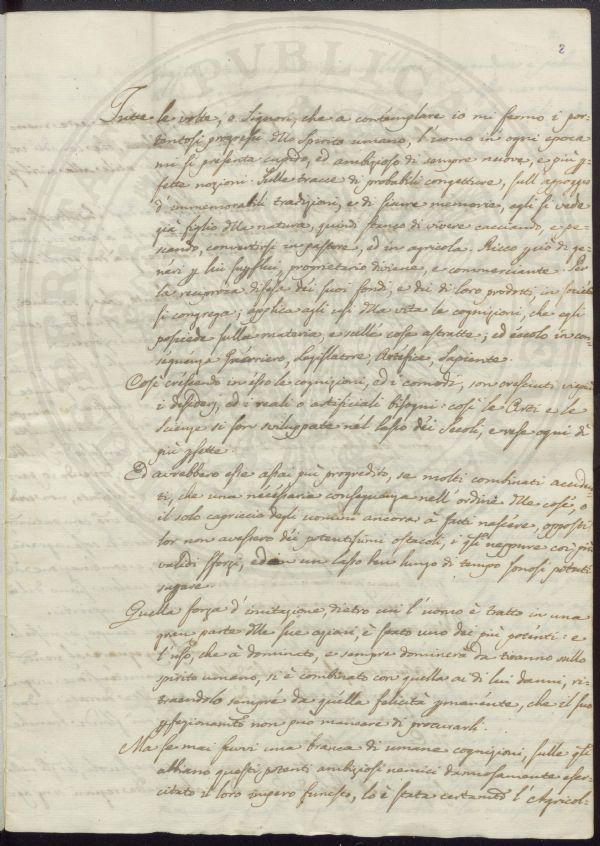 2
Tutte le volte, o Signori, che a contemplare io mi fermo i por-
tentosi progressi dello Spirito umano, l'uomo in ogni epoca
mi si presenta cupido, ed ambizioso di sempre nuove, e più p-
fette nozioni. Sulle tracce di probabili congetture, sull'appoggio
d'immemorabili tradizioni, e di sicure memorie, egli si vede
già figlio della natura, quindi stanco di vivere cacciando, e pe-
scando, convertirsi in pastore, ed in agricola. Ricco poi di ge-
neri p lui superflui, proprietario diviene, e commerciante. Per
la reciproca difesa dei suoi fondi, e dei di loro prodotti, in società
si congrega; applica agli usi della vita le cognizioni, che egli
possiede sulla materia, e sulle cose astratte; ed eccolo in con-
seguenza Guerriero, Legislatore, Artefice, Sapiente.
Così crescendo in esso le cognizioni, ed i comodi, son cresciuti
i desiderj, ed i reali o artificiali bisogni: così le Arti e le
Scienze si son sviluppate nel lasso dei Secoli, e rese ogni dì
più pfette.
Ed avrebbero esse assai più progredito, se molti combinati acciden-
ti, che una necessaria conseguenza nell'ordine delle cose, o
il solo capriccio degli uomini ancora à fatti nascere, opposti
lor non avessero dei potentissimi ostacoli, i quali neppure coi più
validi sforzi, ed in un lasso ben lungo di tempo sonosi potuti
sugare.
Quella forza d'imitazione, dietro cui l'uomo è tratto in una
gran parte delle sue azioni, è stato uno dei più potenti: e
l'uso, che à dominato, e sempre dominerà da tiranno sullo
spirito umano, si è combinato con quella ai di lui danni, ri-
traendolo sempre da quella felicità pmanente, che il suo
pfezionamto non può mancare di procurarli.
Ma se mai fuvvi una branca di umane cognizioni, sulle qli
abbiano questi potenti ambiziosi nemici dannosamente eser-
citato il loro impero funesto, lo è stata certamte l'Agricol-
REPUBLICA